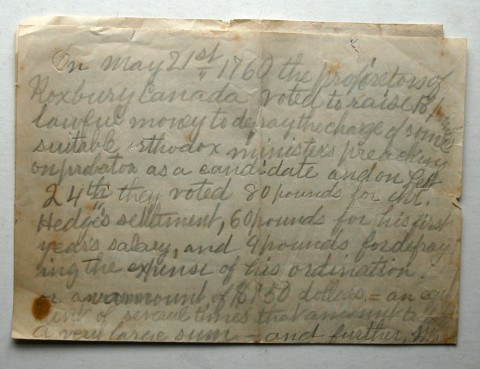 On May 21st 1760 the proprietors of
Roxbury Canada voted to raise 8 p
lawful money to defray the charge of some
suitable orthodox minister's preaching
on probation as a candidate and on Sept
24th they voted 80 pounds for Mr.
Hedge's settlement, 60 pounds for his first
year's salary, and 9 pounds for defray
ing the expense of his ordination.
or an amount of $ 50 dollars = an equ
of several times that amount to
a very large sum and further, Mr